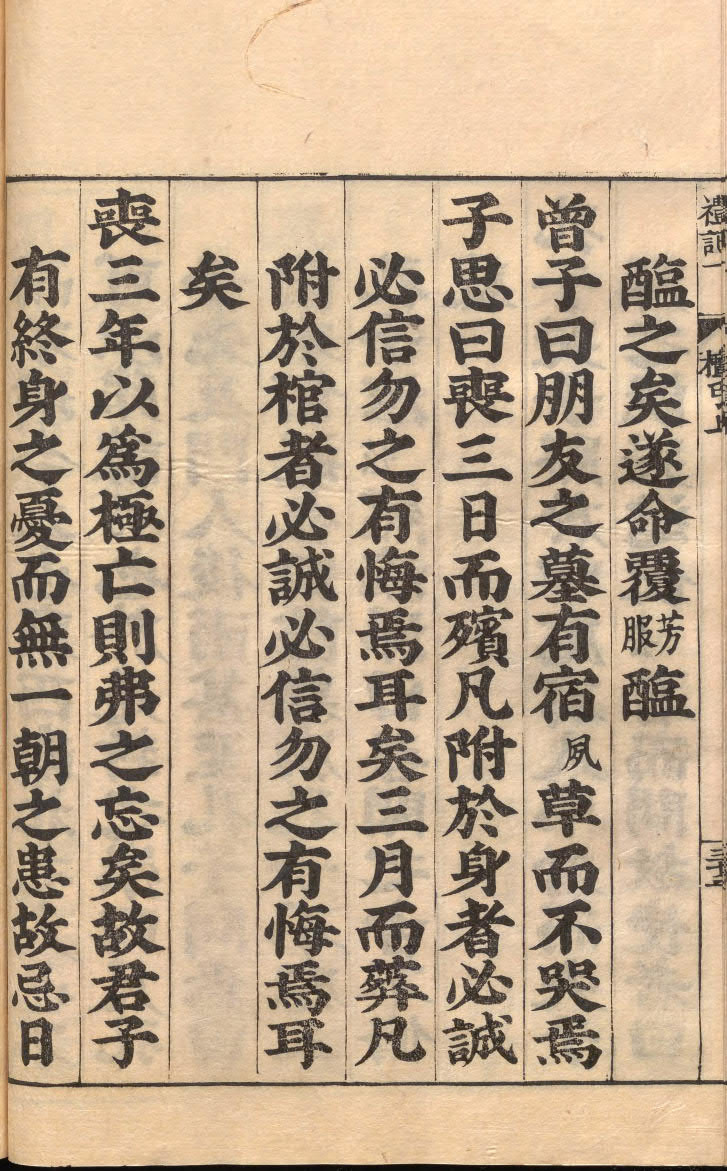 禮記一 檀弓上
醢之矣遂命覆芳服醢
曾子曰朋友之墓有宿夙草而不哭焉
子思曰喪三日而殯凡附於身者必誠
必信勿之有悔焉耳矣三月而葬凡
附於棺者必誠必信勿之有悔焉耳
矣
喪三年以爲極亡則弗之忘矣故君子
有終身之憂而無一朝之患故忌日